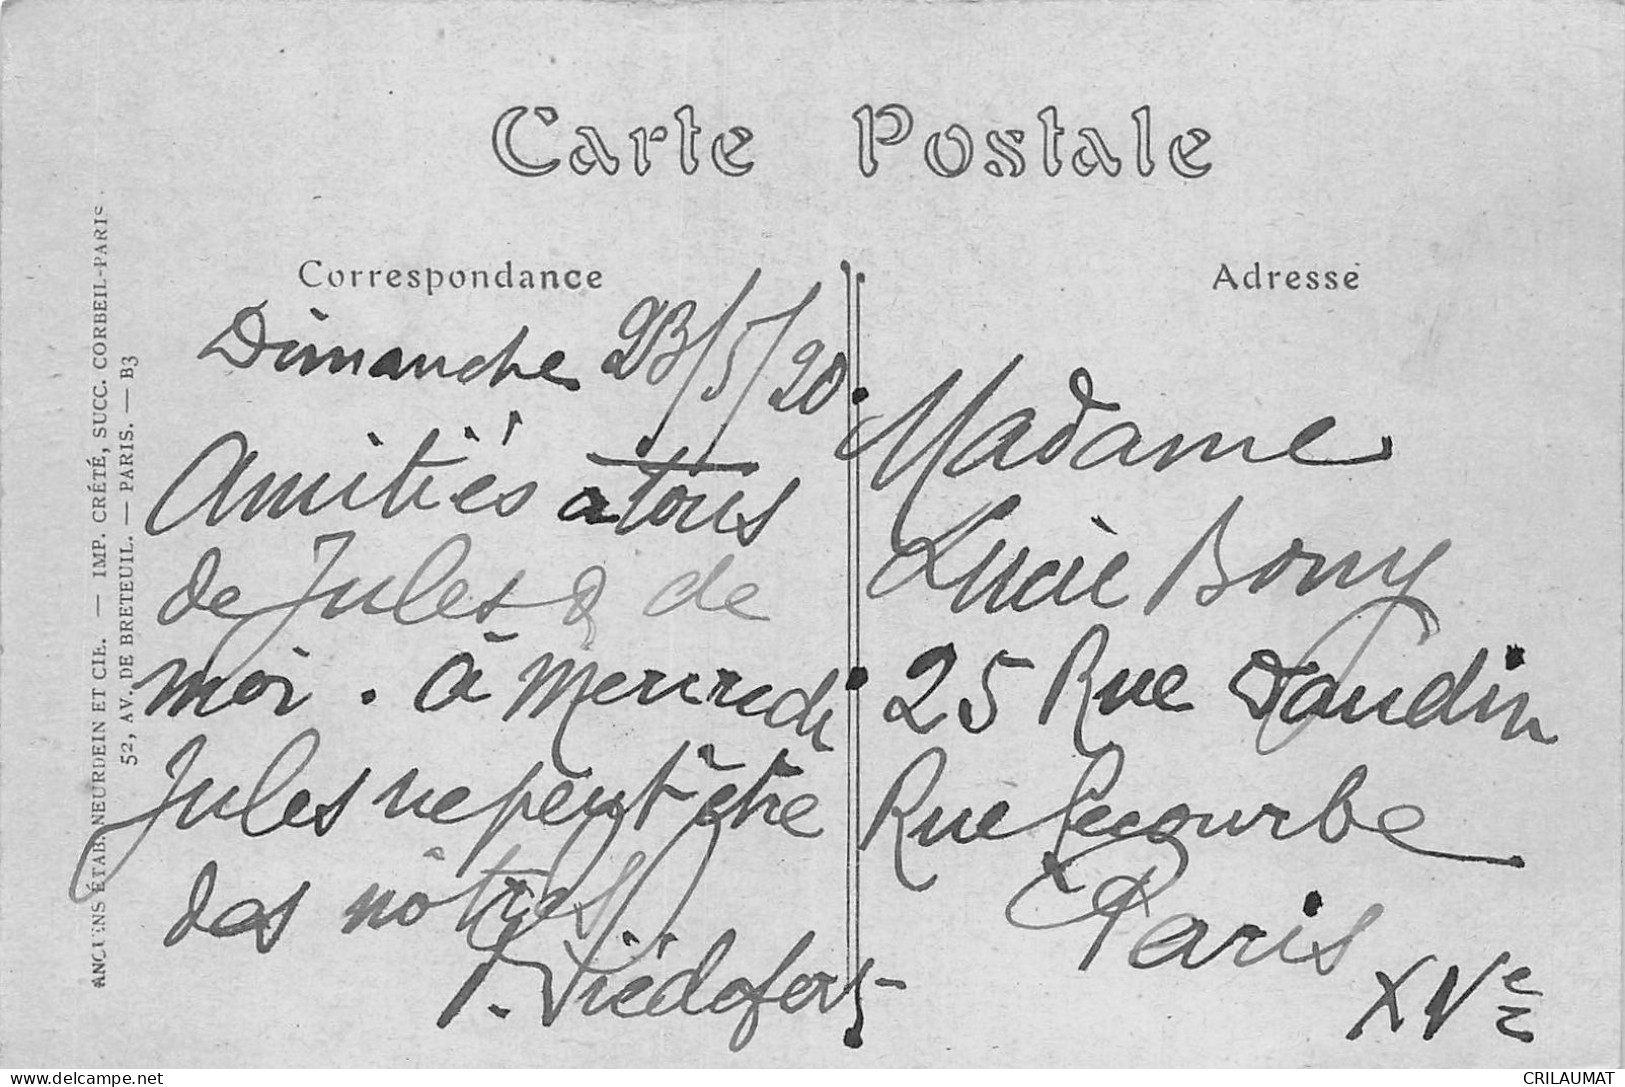 Carte Postale
Correspondance
Dimanche 23/5/20.
Amitiés à tous
de Jules & de
moi. à mercredi
Jules ne peut être
des nôtres
Adresse
Madame
Lucie Bony
25 Rue Daudin
Rue Lecourbe
Paris
XVe
ANCIENS ÉTAB. NEURDEIN ET CIE. — IMP. CRÉTÉ, SUCC. CORBEIL-PARIS
52, AV. DE BRETEUIL. — PARIS. — B3
delcampe.net
CRILAUMAT